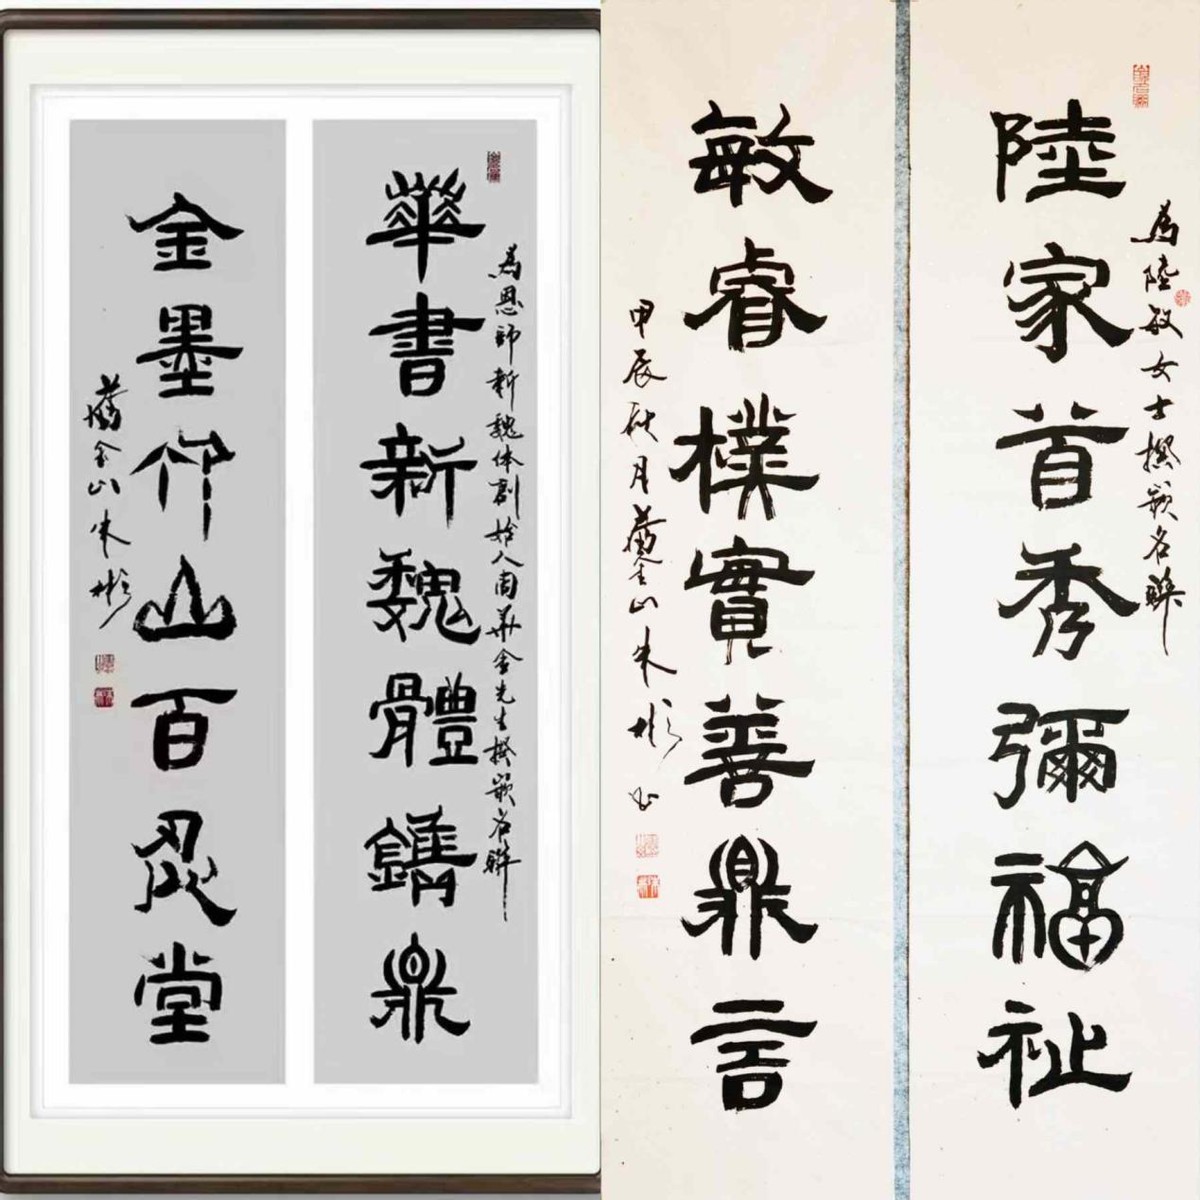 為恩師新魏体創始人周華金先生撰嵌名聯
華書新魏體鐫鼎
金墨竹山百忍堂
舊金山朱彬
為陸敏女士撰嵌名聯
陸家首秀彌福祉
敏睿樸實善鼎言
甲辰秋月舊金山朱彬书